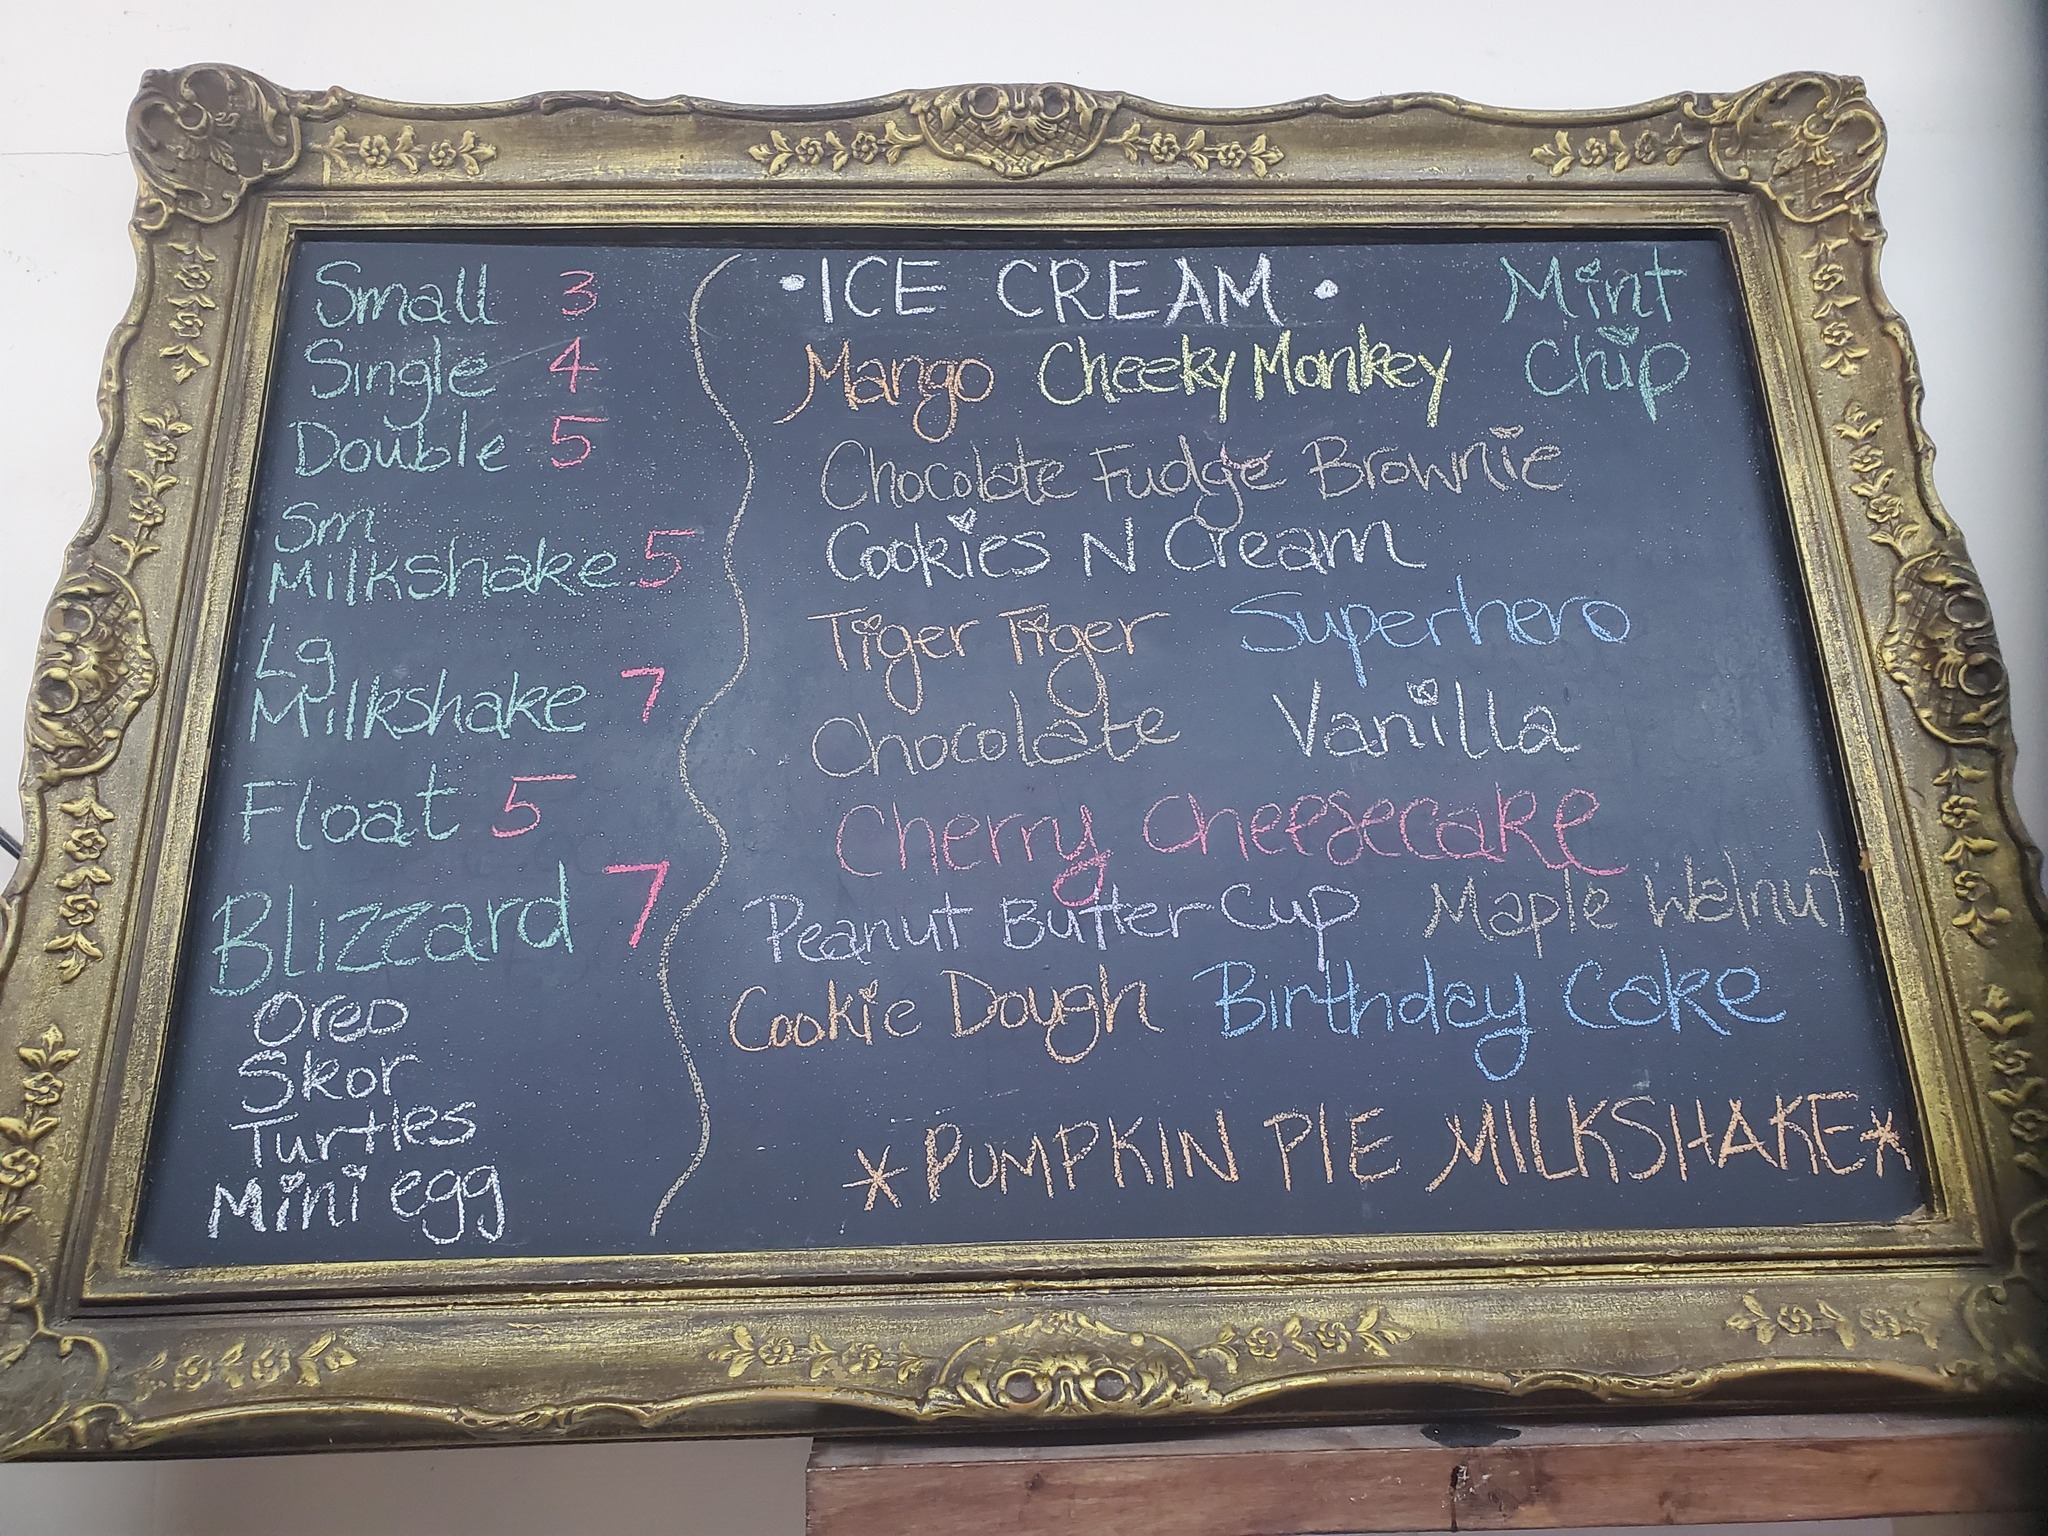 Small 3
Single 4
Double 5
Sm
Milkshake 5
Lg
Milkshake 7
Float 5
Blizzard 7
Oreo
Skor
Turtles
Mini egg
•ICE CREAM•
Mint
Chip
Mango Cheeky Monkey
Chocolate Fudge Brownie
Cookies N Cream
Tiger Tiger Superhero
Chocolate Vanilla
Cherry Cheesecake
Peanut Butter Cup Maple Walnut
Cookie Dough Birthday Cake
*PUMPKIN PIE MILKSHAKE*